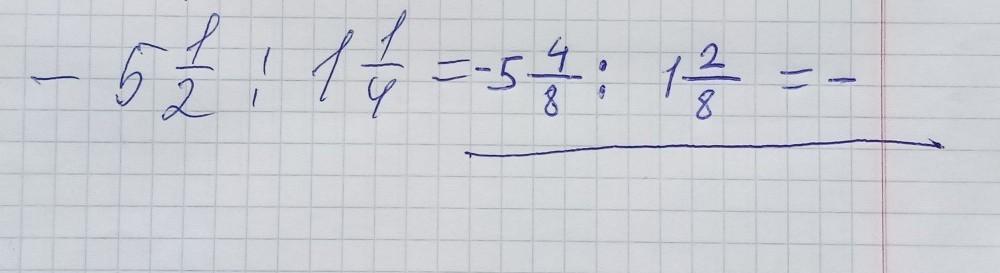 - 5 1/2 : 1 1/4 = -5 4/8 : 1 2/8 = -